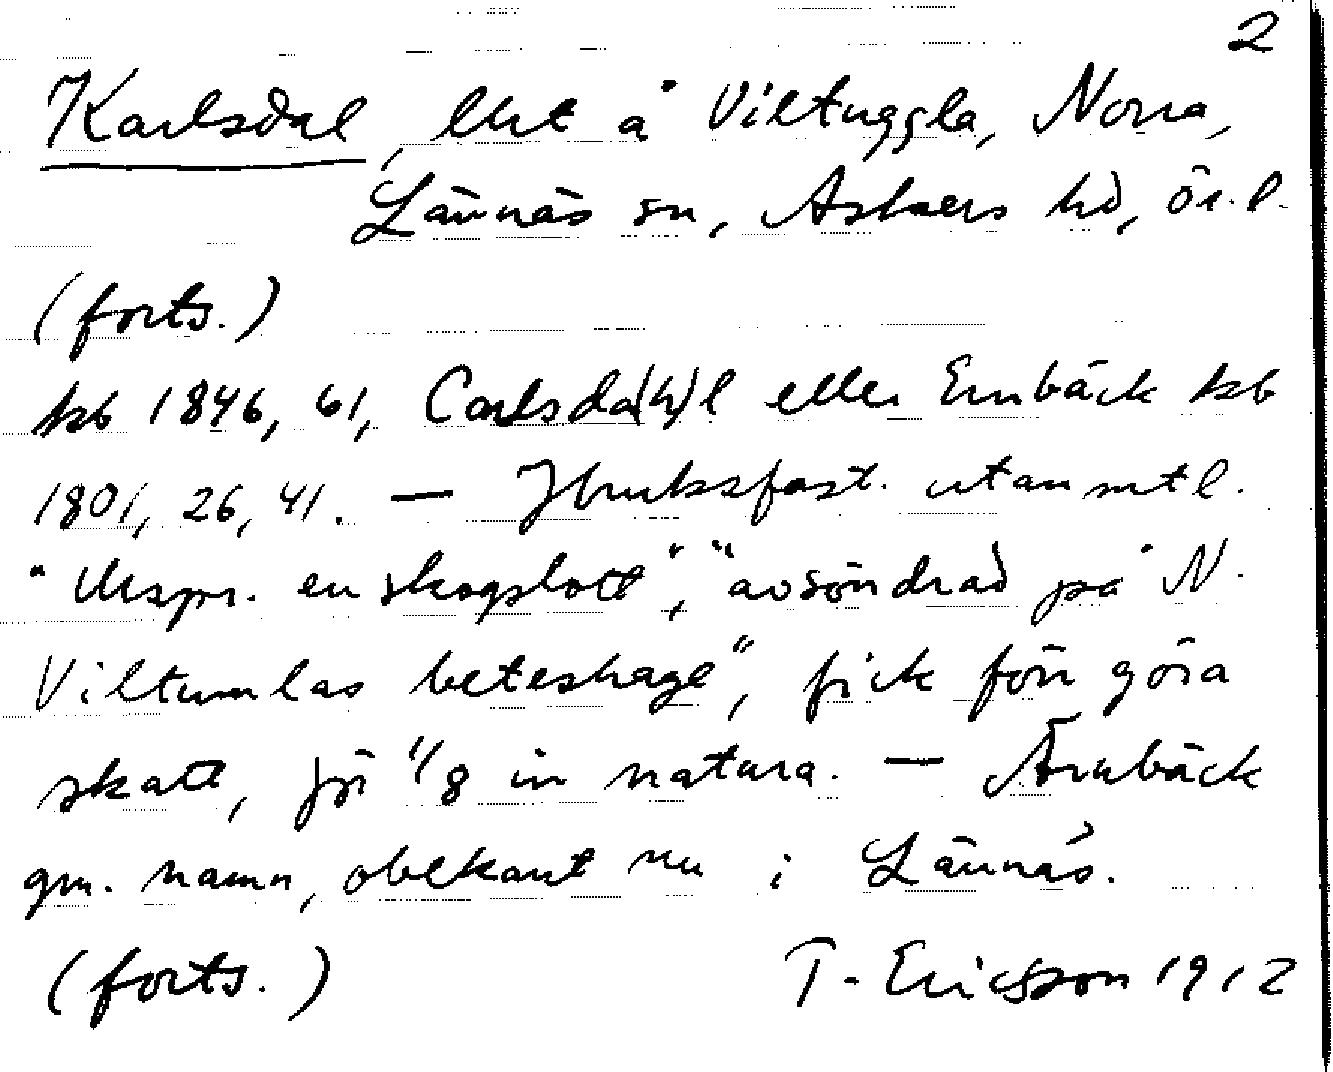 2
Karlsdal, lht å Viltuggla, Norra,
Lännäs sn, Askers hd, ör. l.
(forts.)
kb 1846, 61, Carlsda(h)l eller Ernbäck kb
1801, 26, 41. — Jbruksfast. utan mtl.
"Urspr. en skogslott", "avsöndrad på N.
Viltumlas beteshage", fick förr göra
skatt, för 1/8 in natura. — Ärnbäck
gm. namn, obekant nu i Lännäs.
(forts.) T. Ericsson 1912